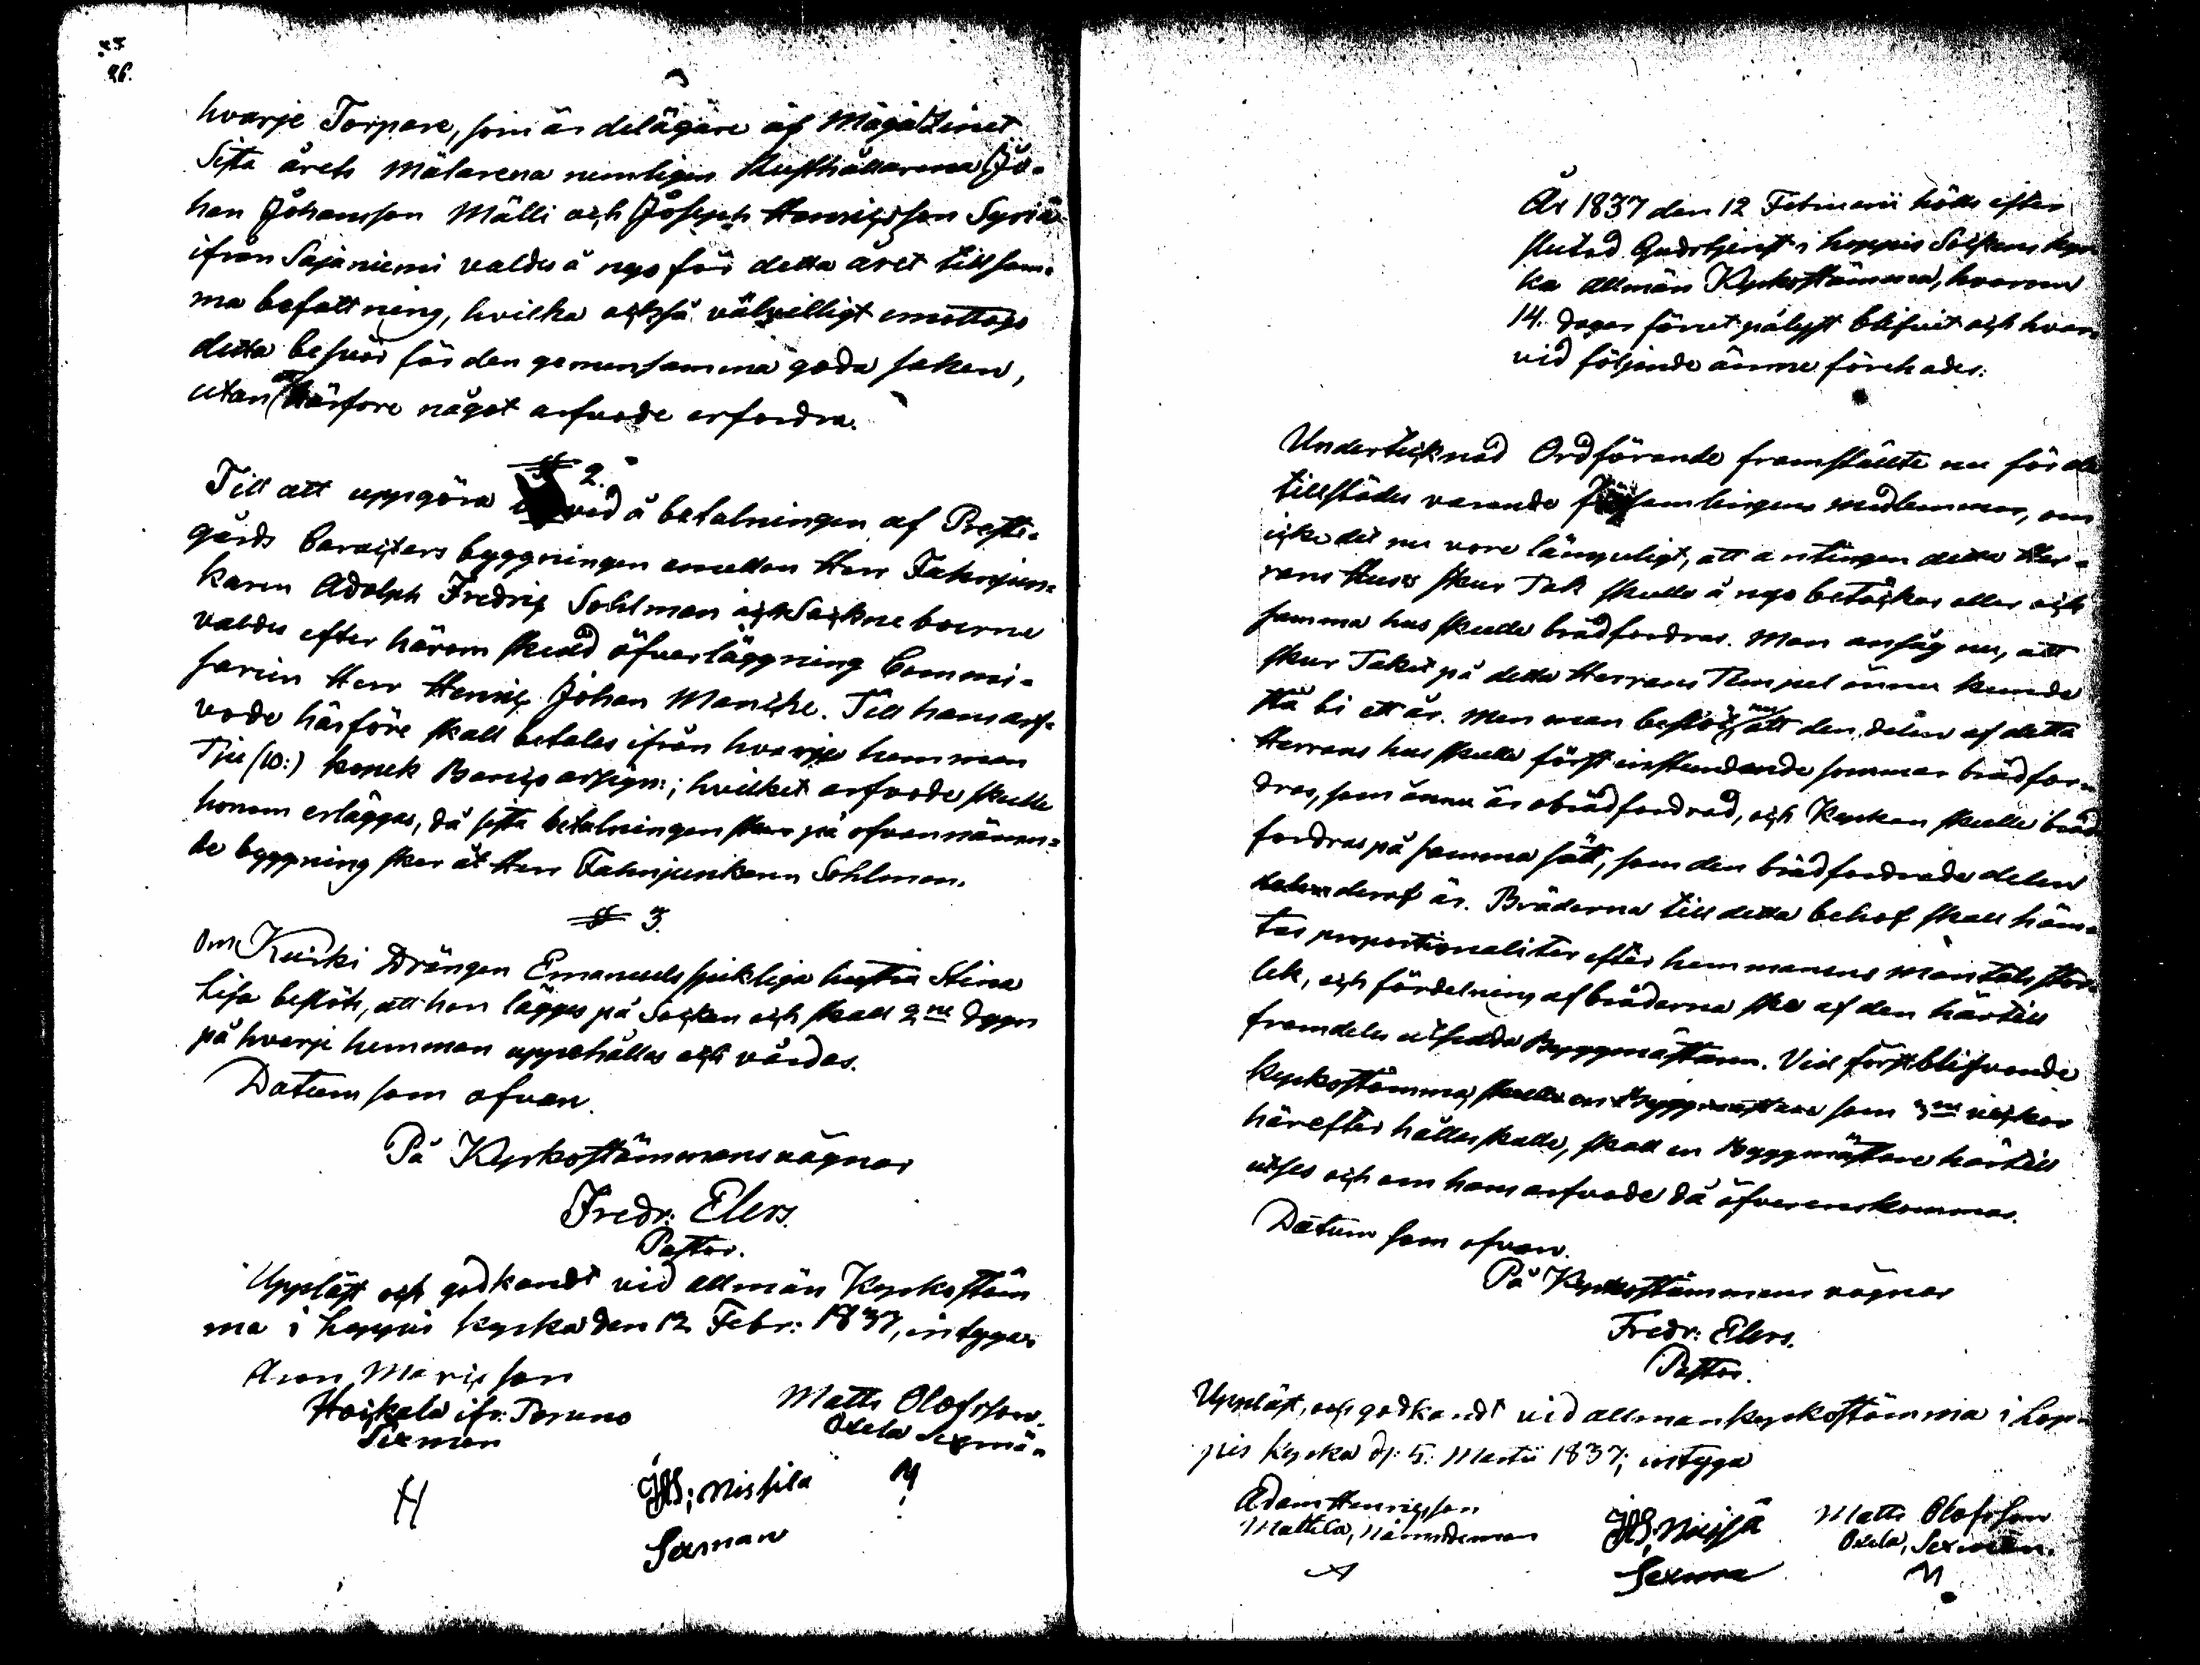 26.
hvarje Torpare, som är delägare af Magatzinet
Sista årets Mätarena nemligen Rusthållarena Jo-
han Johansson Mälli och Joseph Henricsson Syriä
ifrån Sajaniemi valdes å nyo för detta året till sam-
ma befattning, hvilka också välvilligt emottogo
detta besvär för den gemensamma goda saken,
utan att härföre något arfvode erfordra.
§ 2.
Till att uppgöra vid å betalningen af Prest-
gårds Caracters byggningen emellan Herr Fahnjun-
karen Adolph Fredric Sohlman och Sockne boerne
valdes efter härom skedd öfverläggning Commi-
sarien Herr Henric Johan Mancke. Till hans arf-
vode härföre skall betalas ifrån hvarje hemman
Tjie (10:) kopek Banco assign:; hvilket arfvode skulle
honom erläggas, då sista betalningen sker på ofvannämn-
de byggning sker åt Herr Fahnjunkaren Sohlman.
§ 3.
Om Kuiki Drängen Emanuels sjukliga hustru Stina
Lisa beslöts, att hon lägges på Socken och skall 2ne dygn
på hvarje hemman uppehållas och vårdas.
Datum som ofvan.
På Kyrkostämmans vägnar
Fredr: Elers.
Pastor.
Uppläst och godkändt vid allmän Kyrkostäm
ma i Loppis kyrka den 12 Febr: 1837, intyga
Aron Maricsson
Hoickala ifr: Toruno
Sexman
H
JHS; Nissila
Sexman
Matts Olofsson
Oxela Sexmän
M
År 1837 den 12 Februarii hölls efter
slutad Gudstjenst i Loppis Sockens kyr
ka allmän Kyrkostämma, hvarom
14. dagar förut pålyst blifvit och hvar-
vid följande ämne förehades:
Undertecknad Ordförande framställte nu för de
tillstädes varande församlingens medlemmar, om
icke det nu vore lämpeligt, att antingen detta Her-
rans Huses skur Tak skulle å nyo betäckas eller och
samma hus skulle brädfordras. Man ansåg nu, att
skur Taket på detta Herrans Tempel ännu kunde
stå bi ett år. Men man beslöt nu att den delen af detta
Herrans hus skulle först instundande sommar brädfor-
dras, som ännu är obrädfordrad, och Kyrkan skulle bräd
fordras på samma sätt, som den brädfordrade delen
deraf är. Bräderna till detta behof skall häm-
tas proportionaliter efter hemmanens mantals stor-
lek, och fördelning af bräderna ske af den härtill
framdeles utsedde Byggmästaren. Vid först blifvande
kyrkostämma, skulle en Byggmästare som 3ne veckor
härefter hållas skulle, skall en Byggmästare härtill
utses och om hans arfvode då öfverenskommas.
Datum som ofvan.
På Kyrkostämmans vägnar
Fredr: Elers.
Pastor.
Uppläst, och godkändt vid allman kyrkostämma i Lop-
pis kyrka d: 5: Martii 1837; intyga
Adam Henricsson
Mattila, Nämndeman
JHS; Nissä
Sexma
Matts Olofsson
Oxela, Sexmän.
M